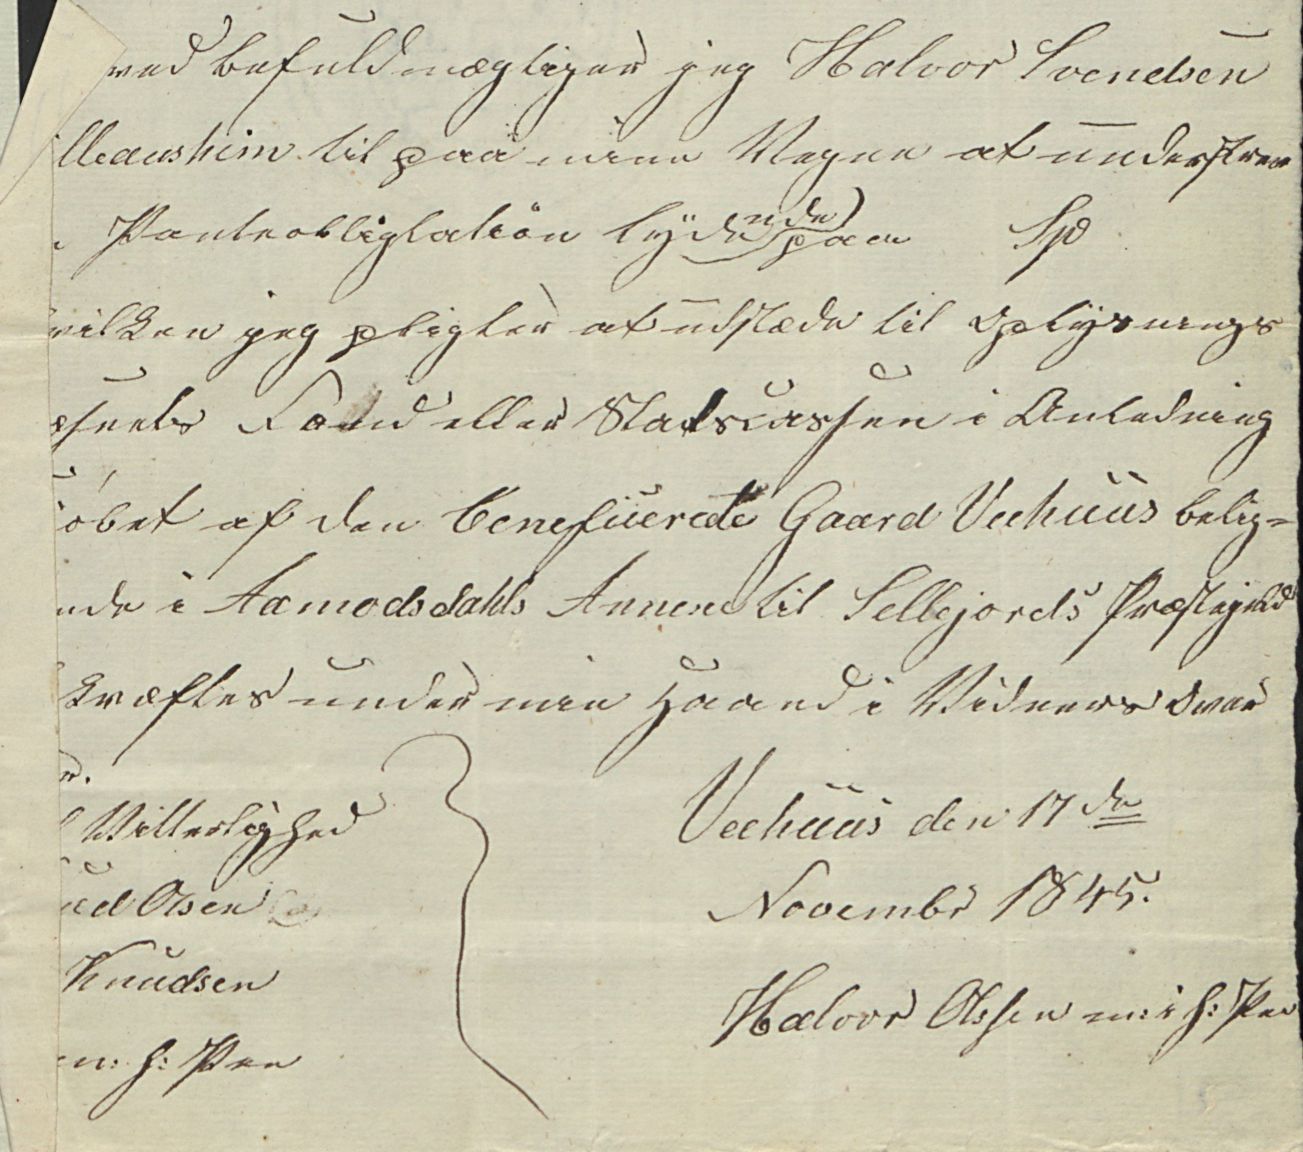 ved befuldmægtiger jeg Halvor Svendsen
til paa mine Vegne at underskrive
Panteobligtation lydende paa Spd
vilken jeg pligter at udstæde til Oplysnings
Fond eller Statscassen i Anledning
øbet af den beneficerede Gaard Veehuus belig-
nde i Aamodsdahls Annex til Sellejords Præstegield
kræftes under min Haand i Vidners Over
r.
Vitterlighed
ud Olsen
Knudsen
m: h: Pen
Veehuus den 17de
Novembr 1845.
Halvor Olssen m: i h: Pen